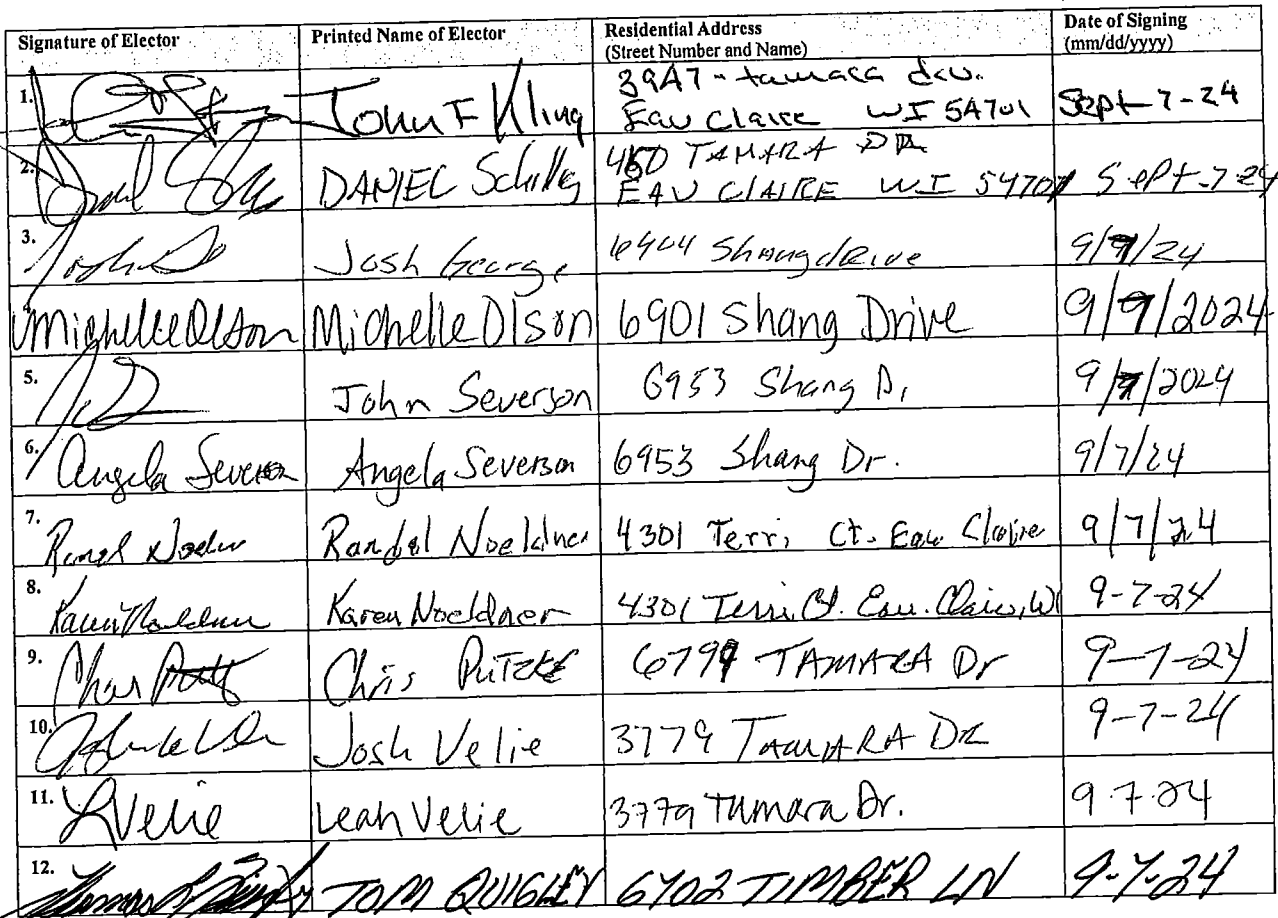 Signature of Elector Printed Name of Elector Residential Address (Street Number and Name) Date of Signing (mm/dd/yyyy)
1. John F Kling 39A7 - tamara
Eau Claire WI 54701 Sept-7-24
2. DANIEL TAMARA DR
EAU CLAIRE WI 54701 Sept-7-24
3. Josh George 6904 9/7/24
Michelle Olson Michelle Olson 6901 Shang Drive 9/7/2024
5. John Severson 6953 Shang Dr 9/7/2024
6. Angela Severson Angela Severson 6953 Shang Dr. 9/7/24
7. Randal Noeldner 4301 Terri Ct. Eau Claire 9/7/24
8. Karen Noeldner Karen Noeldner 4301 Terri Ct. Eau Claire, W 9-7-24
9. Chris PUTZKE TAMARA Dr 9-7-24
10. Josh Velie 3779 TAMARA DR 9-7-24
11. LVelie Leah Velie 3779 Tamara Dr. 9-7-24
12. TOM QUIGLEY 6702 TIMBER LN 9-7-24